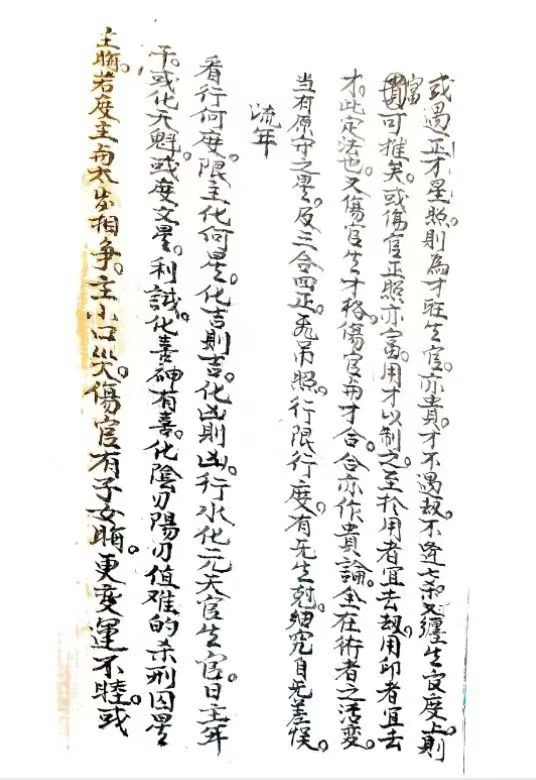 或遇正才星照。則為才旺生官。亦貴。才不遇刼。不逢七杀。又纏生官度上。則
富可推矣。或傷官正照亦富。用才以制之。至於用者宜去刼。用印者宜去
才。此定法也。又傷官生才格。傷官与才合。合亦作貴論。全在術者之活变。
当有原守之星。及三合四正。飛吊照。行限行度。有无生尅。細究自无差悞。
流年
看行何度。限主化何星。化吉則吉。化凶則凶。行水化元天官生官日主年
干。或化天魁。或度文星。利試。化喜神有喜。化陰刃陽刃值难的杀刑囚星
主晦。若度主与太岁相争。主小口災。傷官有子女晦。更变運不睦。或